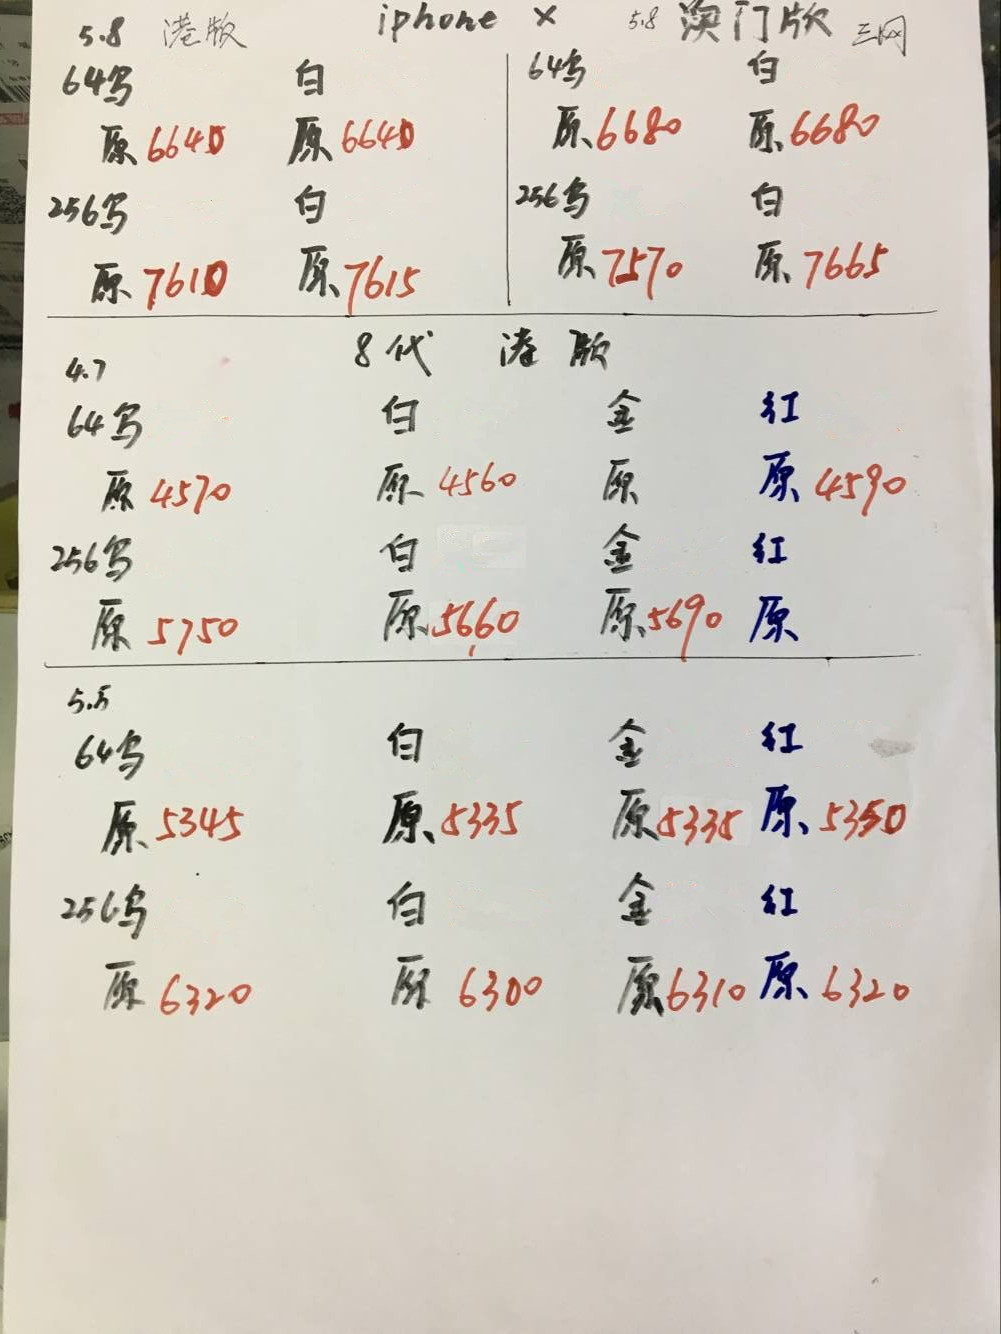 5.8 港版 iphone X 5.8 澳门版 三网
64乌 白 64乌 白
原 6640 原 6640 原 6680 原 6680
256乌 白 256乌 白
原 7610 原 7615 原 7570 原 7665
8代 港版
4.7
64乌 白 金 红
原 4570 原 4560 原 原 4590
256乌 白 金 红
原 5750 原 5660 原 5690 原
5.5
64乌 白 金 红
原 5345 原 5335 原 5335 原 5350
256乌 白 金 红
原 6320 原 6300 原 6310 原 6320